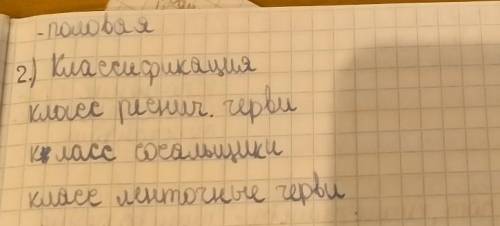 -половая
2.) Классификация
класс реснич. черви
класс сосальщики
класс ленточные черви